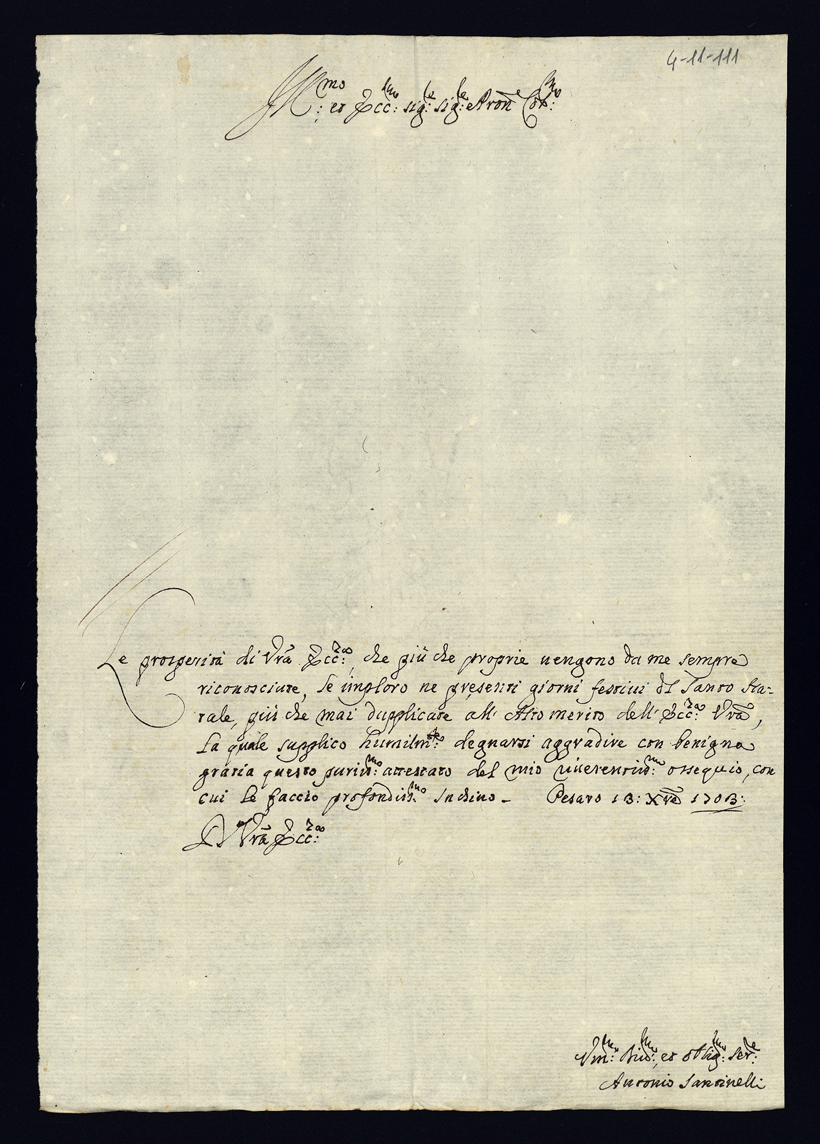 4-11-111
Ill:mo et Ecc:mo sig:re sig:re e Pron Col:mo
Le prosperità di Vra Ecc:za, che più che proprie uengono da me sempre
riconosciute, Le imploro ne presenti giorni festiui del Santo Na-
tale, più che mai dupplicate all' Alto merito dell' Ecc:za Vra,
La quale supplico humilm:te degnarsi aggradire con benigna
gratia questo puriss:mo attestato del mio riuerentiss:mo ossequio, con
cui le faccio profondiss:mo Inchino - Pesaro 13: Xre 1703:
D V'ra Ecc:za
Vm:mo Diu:mo, et oblig:mo Ser:re
Antonio Santinelli